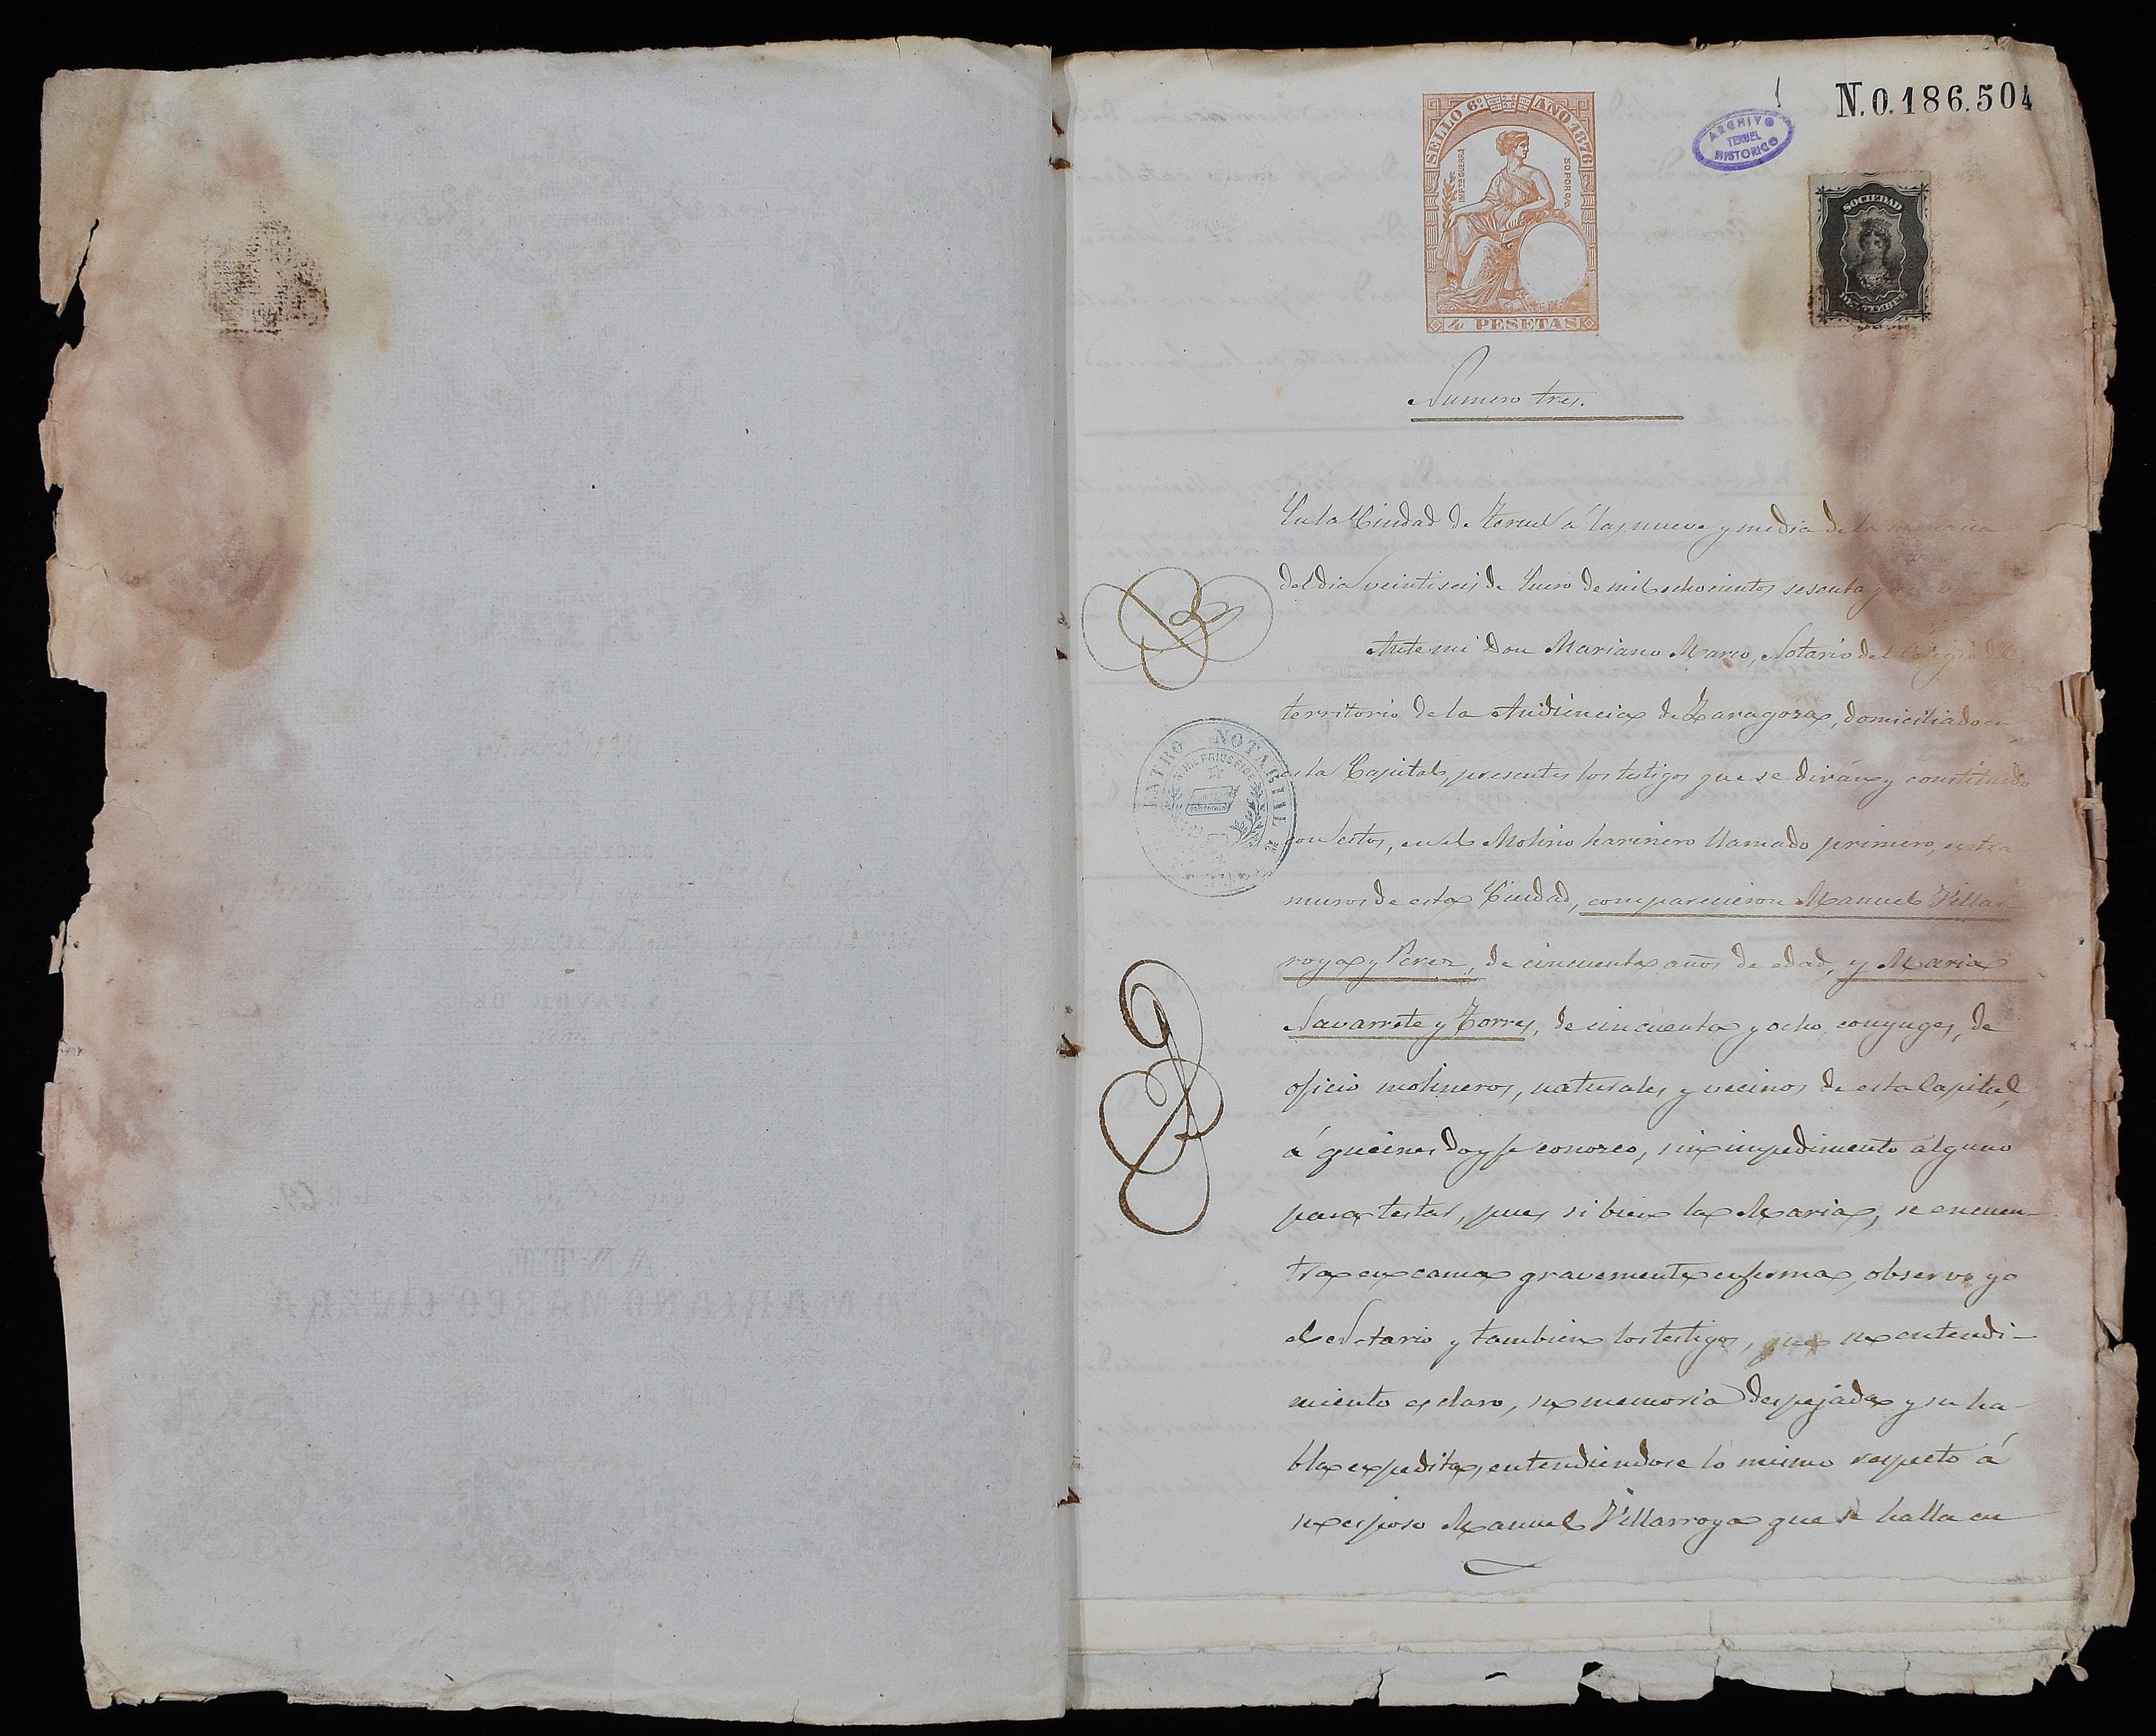 N.0.186.504
SELLO 6º AÑO 1876
IMPTO GUERRA
50 POR O/O
4 PESETAS
ARCHIVO
TERUEL
HISTORICO
SOCIEDAD
DEL TIMBRE
Numero tres.
En la Ciudad de Teruel á las nueve y media de la mañana
del dia veintiseis de Enero de mil ochocientos sesenta y
Ante mi Don Mariano Marco, Notario del Colegio del
territorio de la Audiencia de Zaragoza, domiciliado en
esta Capital, presentes los testigos que se dirán y constituido
con estos, en el Molino harinero llamado primero, extra
muros de esta Ciudad, comparecieron Manuel Villar-
roya y Perez, de cincuenta años de edad, y Maria
Navarrete y Torres, de cincuenta y ocho, conyuges, de
oficio molineros, naturales y vecinos de esta Capital,
á quienes doy fe conozco, sin impedimento alguno
para testar, pues si bien la Maria, se encuen-
tra en cama gravemente enferma, observo yo
el Notario y tambien los testigos, que su entendi-
miento es claro, su memoria despejada y su ha-
bla expedita, entendiendose lo mismo respeto á
su esposo Manuel Villarroya que se halla en
NOTARIAL
NIHIL PRIUS FIDE